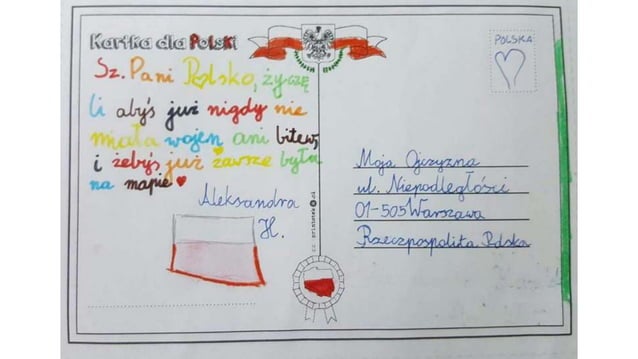 Kartka dla Polski
Sz. Pani Polsko, życzę
Ci abyś już nigdy nie
miała wojen ani bitew,
i żebyś już zawsze była
na mapie
Aleksandra
H.
POLSKA
Moja Ojczyzna
ul. Niepodległości
01-505 Warszawa
Rzeczpospolita Polska